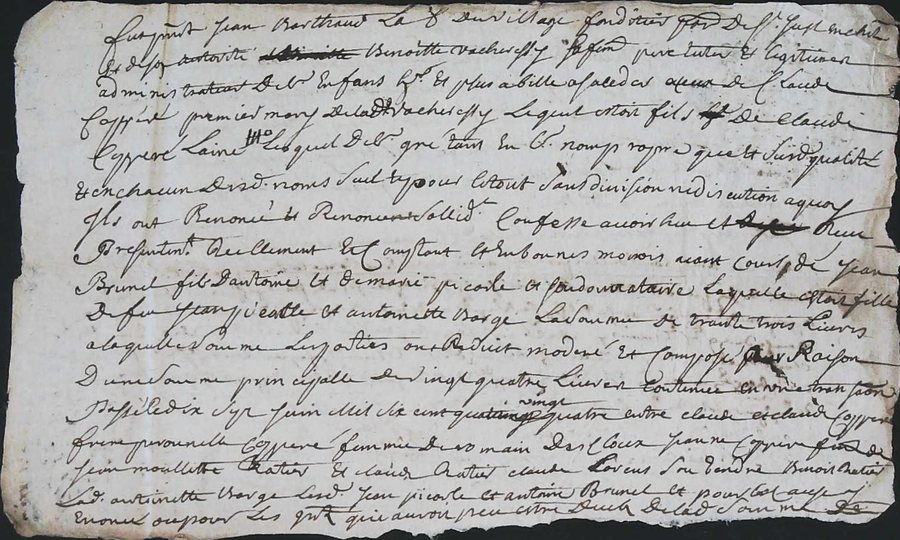 fut pnt Jean Barthaud La r du village fondotier par de st Just en chlt
et de son autorité Benoitte vacheressy sa fem pere tuteur et legitimer
administrateur de Ses Enfans h et plus abille a succeder a ceux de Claude
Coppéré premier mary de lad vacheressy Lequel etoit fils de Claude
Coppere Laine Lesquel de leur gré tant en leur nom propre que et susd qualité
et en chacun desd noms seul et pour le tout sans division ni discution a quoy
Ils ont Renoncé et Renoncent sollid Confesse avoir heu et Receu
Presentemt Reellement et Comptant et en bonnes monois aiant cours de Jean
Brunel fils d'antoine et de marie picorle et son donnataire laquelle etoit fille
De feu Jean picolle et antoinette Barge La Somme de trante trois Livres
a laquelle Somme Les parties ont Reduit moderé et Composé Par Raison
D'une Somme principalle de vingt quatre Livres Contenue en une transaon
Passée le dix Sept Juin Mil Six cent vingt quatre entre claude et claude Coppere
frere peronnelle Coppere femme de Romain des Cloux Jeanne Coppere de
Jean moullette Ratier et claude Ratier claude Son Gendre Benoit Ratier
Lad antoinette Barge Lesd Jean picorle et antoine Brunel et pour les causes y
Enoncé ou pour Les qui auroit peu estre deub de lad Somme de